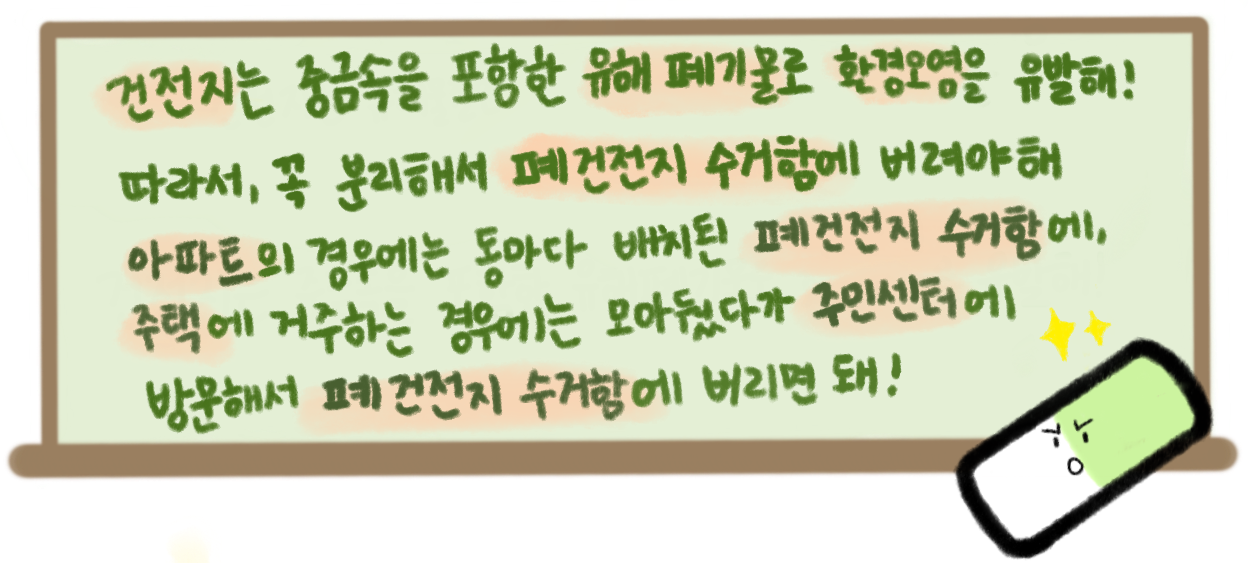 건전지는 중금속을 포함한 유해 폐기물로 환경오염을 유발해!
따라서, 꼭 분리해서 폐건전지 수거함에 버려야해
아파트의 경우에는 동마다 배치된 폐건전지 수거함에,
주택에 거주하는 경우에는 모아뒀다가 주민센터에
방문해서 폐건전지 수거함에 버리면 돼!